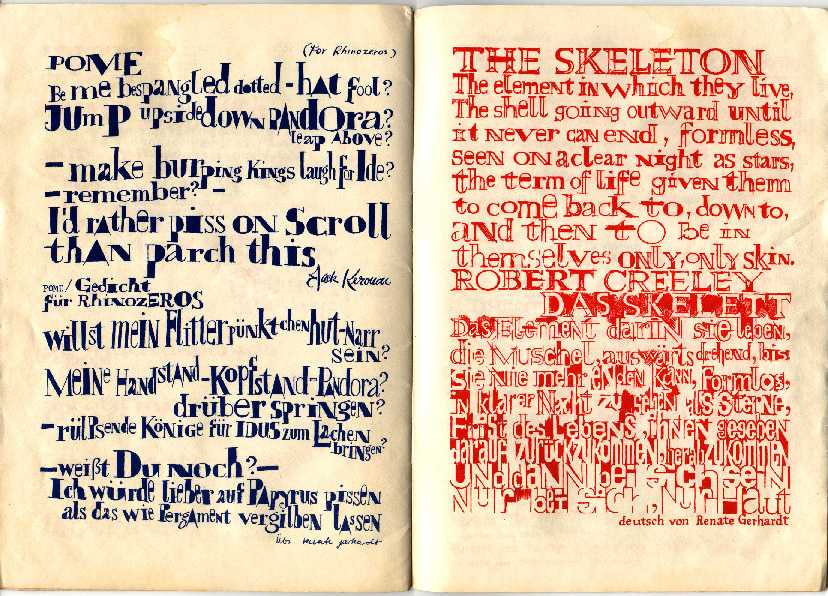 (for Rhinozeros)
POME
Be me bespangled dotted - hat fool?
Jump upsidedown PANDora?
leap Above?
- make burping Kings laugh for Ide?
- remember? -
I'd rather piss on Scroll
thAN parch this
Jack Kerouac
POME / Gedicht
für RhiNOZEROS
willst mein Flitterpünktchenhut-Narr
sein?
Meine Handstand-Kopfstand-Pandora?
drüber springen?
- rülpsende Könige für IDUS zum Lachen
bringen?
- weißt Du noch? -
Ich würde lieber auf Papyrus pissen
als das wie Pergament vergilben lassen
übs. renate gerhardt
THE SKELETON
The element in which they live,
The shell going outward until
it never can end, formless,
seen on a clear night as stars,
the term of life given them
to come back to, down to,
and then to be in
themselves only, only skin.
ROBERT CREELEY
DAS SKELETT
Das Element darin sie leben,
die Muschel, auswärts drehend, bis
sie nie mehr enden kann, formlos,
in klarer Nacht zu sehen als Sterne,
Frist des Lebens, ihnen gegeben
darauf zurückzukommen, herabzukommen
und dann bei sich sein
Nur bei sich, nur Haut
deutsch von Renate Gerhardt